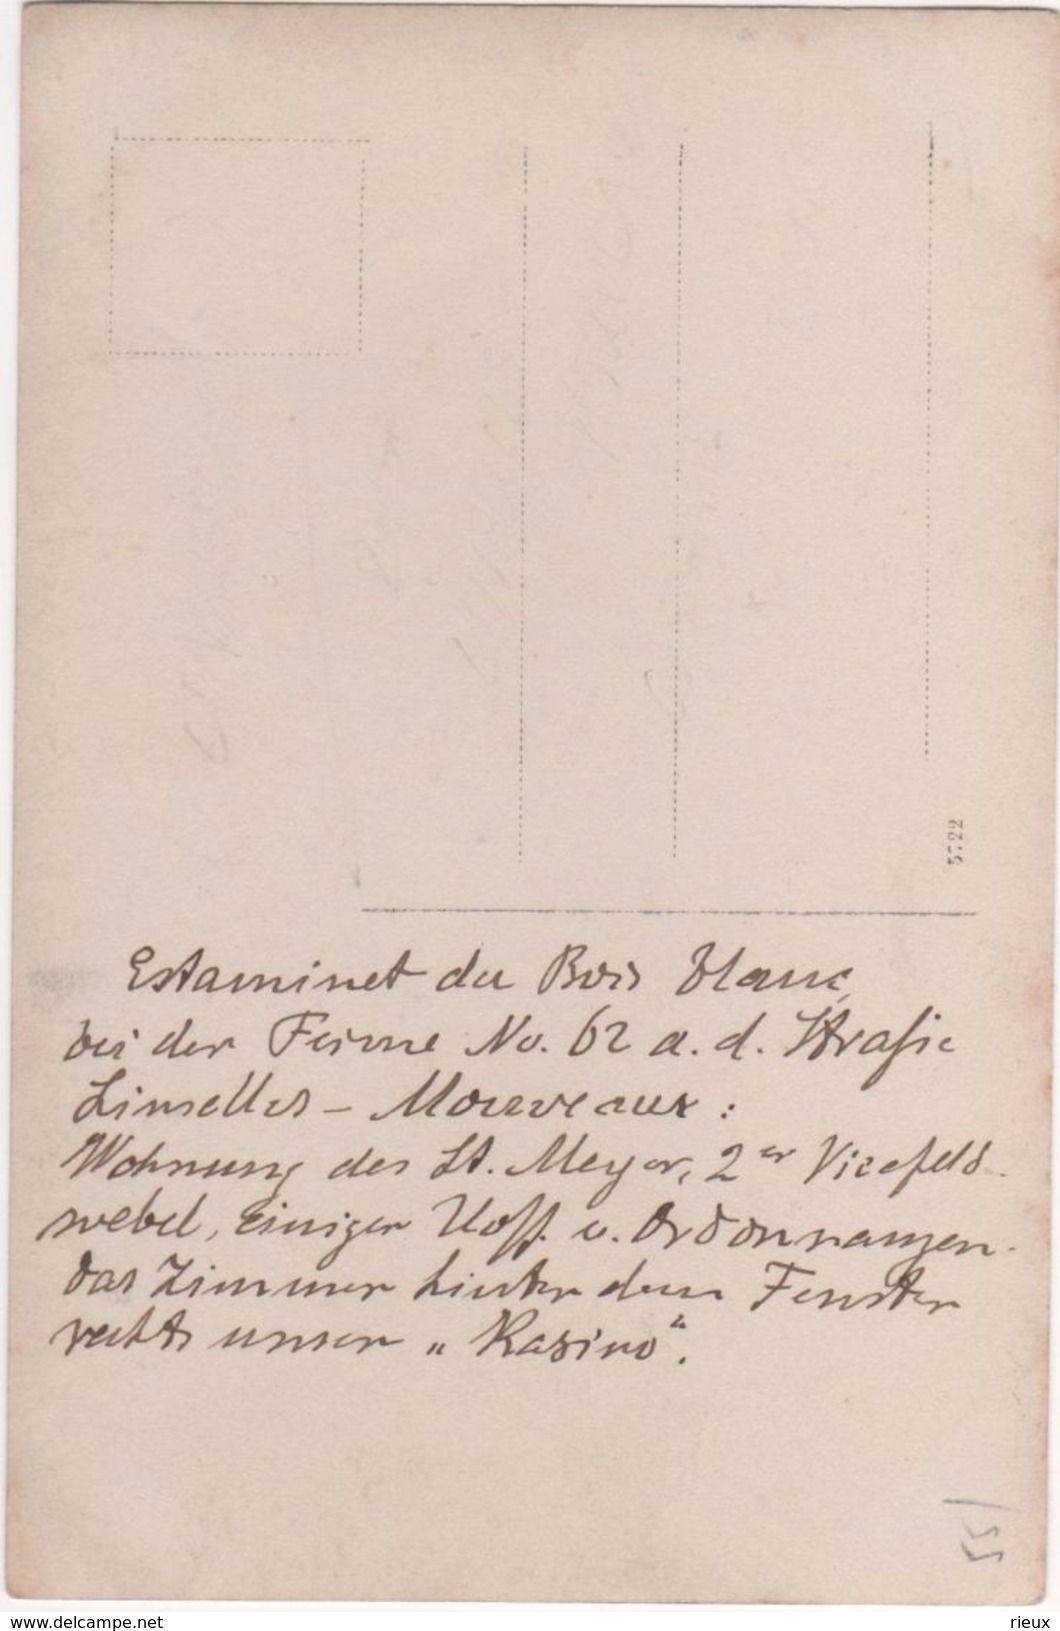 5722
Estaminet du Bois Blanc,
bei der Ferme No. 62 a. d. Straße
Linselles - Mouveaux :
Wohnung des Lt. Meyer, 2er Vizefeld-
webel, einiger Uoff. u. Ordonnanzen.
Das Zimmer hinter dem Fenster
rechts unser „Kasino“.
55
www.delcampe.net
rieux